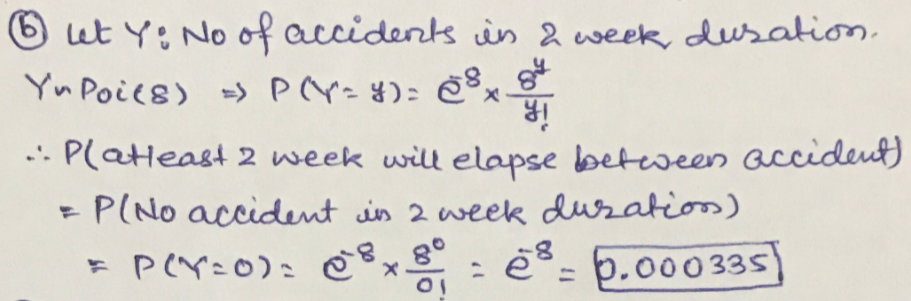 ⑥ Let Y: No of accidents in 2 week duration.
Y~Poi(8) ⇒ P(Y=y)= e^-8 × 8^y/y!
∴ P(atleast 2 week will elapse between accident)
= P(No accident in 2 week duration)
= P(Y=0)= e^-8 × 8^0/0! = e^-8 = 0.000335